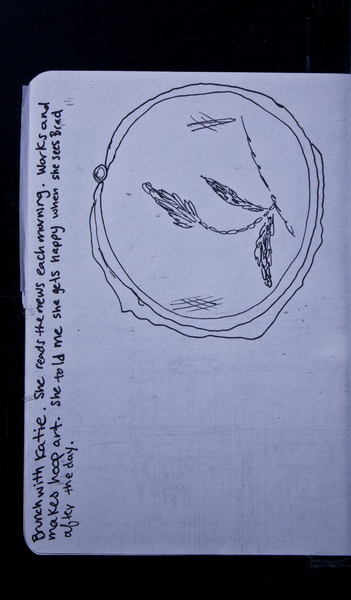 Brunch with Katie. She reads the news each morning. Works and
makes hoop art. She told me she gets happy when she sees Brad
after the day.